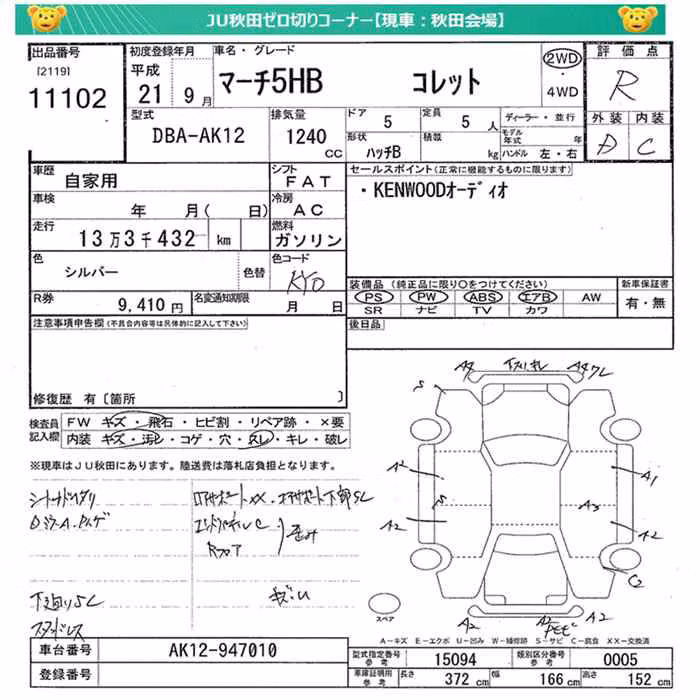 JU秋田ゼロ切りコーナー【現車：秋田会場】
出品番号
[2119]
11102
初度登録年月
平成
21 9月
車名・グレード
マーチ5HB コレット
2WD
・
4WD
評価点
R
型式
DBA-AK12
排気量
1240
CC
ドア
5
定員
5 人
形状
ハッチB
積載
kg
ディーラー・並行
モデル年式 年
ハンドル 左・右
外装 内装
D C
車歴
自家用
シフト
FAT
車検
年 月( 日)
冷房
AC
走行
13万3千432 km
燃料
ガソリン
色
シルバー
色替
色コード
KY0
R券
9,410円
名変通知期限
月 日
セールスポイント(正常に機能するものに限ります)
・KENWOODオーディオ
装備品(純正品に限り○をつけてください)
PS PW ABS エアB AW
SR ナビ TV カワ
新車保証書
有・無
注意事項申告欄(不具合内容等は具体的に記入して下さい)
後日品
修復歴 有〔箇所 〕
検査員記入欄
FW キズ・飛石・ヒビ割・リペア跡・×要
内装 キズ・汚レ・コゲ・穴・スレ・キレ・破レ
※現車はJU秋田にあります。陸送費は落札店負担となります。
コアサポートXX・コアサポート下部SL
エンドパネルC
Rフロア
歪み
下廻りSL
スタッドレス
キズ・U
S
A2
A2
S
A1
A3
A2
C2
A2
A2
スペア
A－キズ E－エクボ U－凹み W－補修跡 S－サビ C－腐食 XX－交換済
車台番号
AK12-947010
登録番号
型式指定番号
参考
15094
類別区分番号
参考
0005
車庫証明用
参考
長さ 372 cm
幅 166 cm
高さ 152 cm